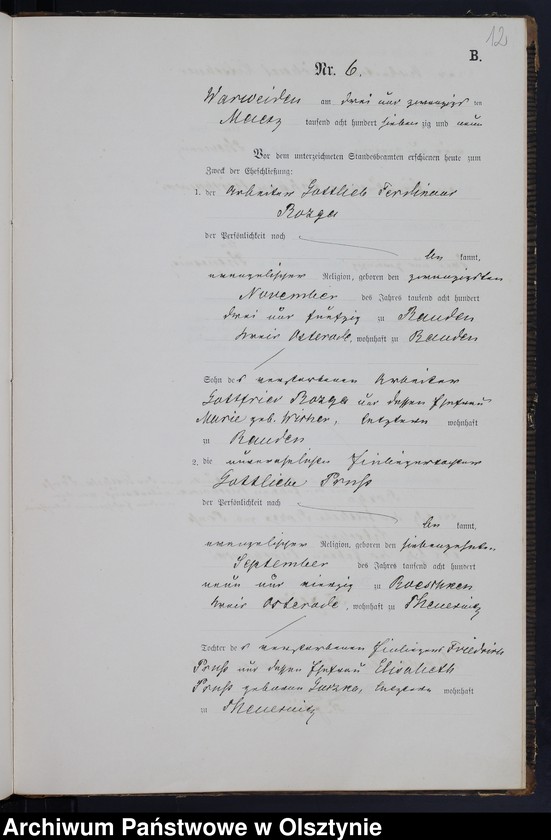 12
B.
Nr. 6.
Warweiden am drei und zwanzigsten
Maerz tausend acht hundert siebenzig und neun
Vor dem unterzeichneten Standesbeamten erschienen heute zum
Zweck der Eheschließung:
1. der Arbeiter Gottlieb Ferdinand
Rozga
der Persönlichkeit nach
be kannt,
evangelischer Religion, geboren den zwanzigsten
November des Jahres tausend acht hundert
drei und fünfzig zu Rauden
Kreis Osterode, wohnhaft zu Rauden
Sohn des verstorbenen Arbeiter
Gottfried Rozga und dessen Ehefrau
Marie geb. letztere wohnhaft
zu Rauden
2. die unverehelichte Einliegertochter
Gottliebe Pruß
der Persönlichkeit nach
be kannt,
evangelischer Religion, geboren den siebenzehnten
September des Jahres tausend acht hundert
neun und vierzig zu Roeschken
Kreis Osterode, wohnhaft zu Theuernitz
Tochter des verstorbenen Einliegers Friedrich
Pruß und dessen Ehefrau Elisabeth
Pruß geborene letztere wohnhaft
zu Theuernitz
Archiwum Państwowe w Olsztynie